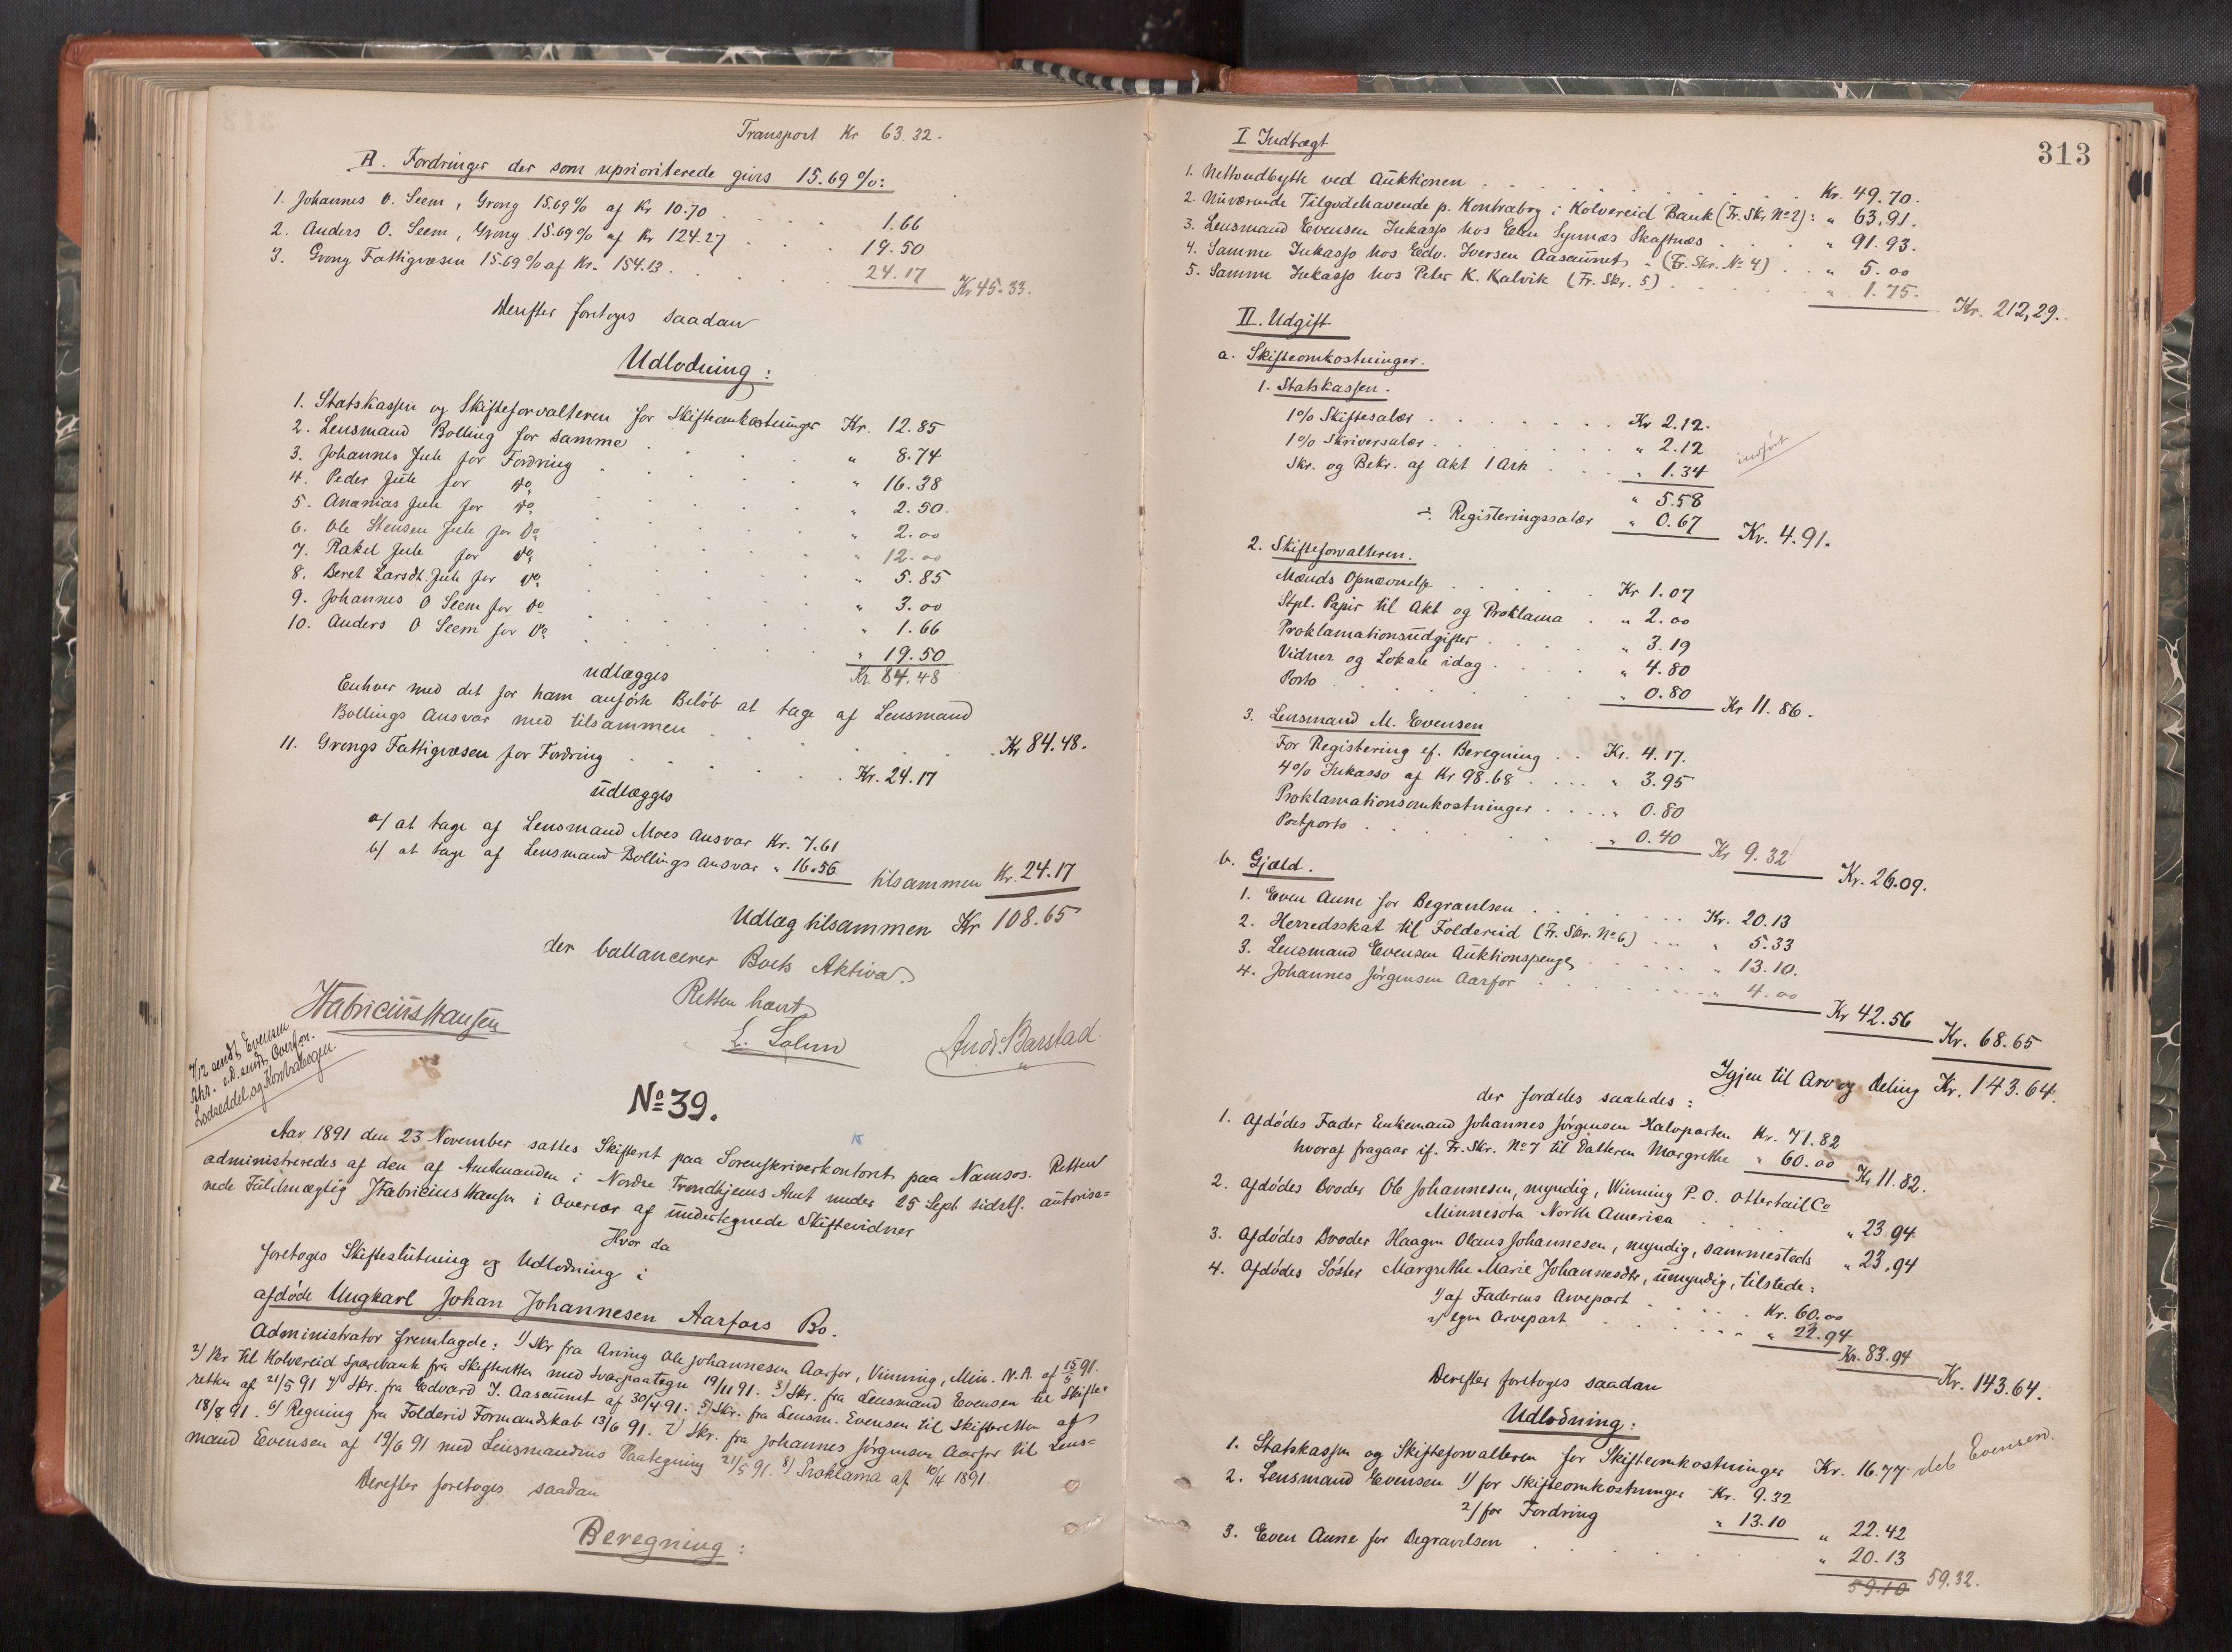 Transport Kr 63.32.
B. Fordringer der som uprioriterede givis 15.69 %:
1. Johannes O. Seem, Grong 15.69% af Kr 10.70 . . . 1.66
2. Anders O. Seem, Grong 15.69% af Kr 124.27 . . . 19.50
3. Grong Fattigvæsen 15.69% af Kr. 154.13 . . . 24.17 Kr 45.33.
Derefter foretoges saadan
Udlodning:
1. Statskassen og Skifteforvalteren for Skifteomkostninger Kr. 12.85
2. Lensmand Bolling for samme . . . " 8.74
3. Johannes Jule for Fordring . . . " 16.38
4. Peder Jule for do. . . . " 2.50.
5. Ananias Jule for do. . . . " 2.00
6. Ole Stensen Jule for Do. . . . 12.00
7. Rakel Jule for do. . . . " 5.85
8. Beret Larsdt. Jule for do. . . . " 3.00
9. Johannes O Seem for do . . . " 1.66
10. Anders O Seem for Do. . . . " 19.50
udlægges Kr. 84.48
Enhver med det for ham anførte Beløb at tage af Lensmand
Bollings Ansvar med tilsammen . . . Kr 84.48.
11. Grongs Fattigvæsen for Fordring . . . Kr. 24.17
udlægges
a/ at tage af Lensmand Moes Ansvar Kr. 7.61
b/ at tage af Lensmand Bollings Ansvar " 16.56 tilsammen Kr. 24.17
Udlæg tilsammen Kr 108.65
der ballancerer Boets Aktiva.
Retten hævet
Fabricius Hansen
And. Barstad
sendt Evensen
Lodseddel og Kontrabogen.
No 39.
Aar 1891 den 23 November sattes Skifteret paa Sorenskriverkontoret paa Namsos. Retten
administreredes af den af Amtmanden i Nordre Trondhjems Amt under 25 Sept sidstl. autorise=
rede Fuldmægtig Fabricius Hansen i Overvær af undertegnede Skiftevidner
Hvor da
foretoges Skifteslutning og Udlodning i
afdøde Ungkarl Johan Johannesen Aarfors Bo.
Administrator fremlagde: 1/ Skr fra Arving Ole Johannesen Aarfor, Vinning, Min. N.A. af 15/5 91.
2/ Skr til Kolvereid Sparebank fra Skifteretten med Svarpaategn 19/11 91. 3/ Skr. fra Lensmand Evensen til Skifte=
retten af 21/5 91 4/ Skr. fra Edvard I. Aasaunet af 30/4 91. 5/ Skr. fra Lensm. Evensen til Skifteretten af
18/8 91. 6/ Regning fra Folderid Formandskab 13/6 91. 7/ Skr. fra Johannes Jørgensen Aarfor til Lens=
mand Evensen af 19/6 91 med Lensmandens Paategning 21/5 91. 8/ Proklama af 10/4 1891.
Derefter foretoges saadan
Beregning:
313
I Indtægt
1. Nettoudbytte ved Auktionen . . . Kr. 49.70.
2. Nuværende Tilgodehavende p. Kontrabog i Kolvereid Bank (Fr. Skr No 2): " 63.91.
3. Lensmand Evensen Inkasso hos Skaftnæs . . . " 91.93.
4. Samme Inkasso hos Edv. Iversen Aasaunet . (Fr. Skr. No 4) . . " 5.00
5. Samme Inkasso hos Peter K. Kalvik (Fr. Skr. 5) . . . " 1.75. Kr. 212,29.
II. Udgift
a. Skifteomkostninger.
1. Statskassen.
1% Skiftesalær . . . Kr 2.12.
1% Skriversalær . . . " 2.12
Skr. og Bekr. af Akt 1 Ark . . . " 1.34
indført
" 5.58
÷ Registeringssalær " 0.67 Kr. 4.91.
2. Skifteforvalteren.
Mænds Opnævnelse . . . Kr 1.07
Stpl. Papir til Akt og Proklama . " 2.00
Proklamationsudgifter . . . " 3.19
Vidner og Lokale idag . . . " 4.80
Porto . . . " 0.80 Kr 11.86.
3. Lensmand M. Evensen
For Registering ef. Beregning . . Kr. 4.17.
4% Inkasso af Kr 98.68 . . . " 3.95
Proklamationsomkostninger . . . " 0.80
Postporto . . . " 0.40 Kr 9.32 Kr. 26.09.
b. Gjæld.
1. Even Aune for Begravelsen . . . Kr. 20.13
2. Herredsskat til Foldereid (Fr. Skr. No 6) . . . " 5.33
3. Lensmand Evensen Auktionspenge . . . " 13.10.
4. Johannes Jørgensen Aarfor . . . " 4.00 Kr 42.56 Kr. 68.65
Igjen til Arv og Deling Kr. 143.64.
der fordeles saaledes:
1. Afdødes Fader Enkemand Johannes Jørgensen Halvparten Kr. 71.82
hvoraf fragaar if. Fr. Skr. No 7 til Datteren Margrethe " 60.00 Kr 11.82.
2. Afdødes Broder Ole Johannesen, myndig, Winning P.O. Ottertail Co
Minnesota North America . . . " 23.94
3. Afdødes Broder Haagen Olaus Johannesen, myndig, sammesteds " 23,94
4. Afdødes Søster Margrethe Marie Johannesdtr, umyndig, tilstede:
1/ af Faderens Arvepart . . . Kr. 60.00
2/ egen Arvepart . . . " 23.94
Kr. 83.94 Kr. 143.64.
Derefter foretoges saadan
Udlodning:
1. Statskassen og Skifteforvalteren for Skifteomkostninger Kr. 16.77 deb Evensen.
2. Lensmand Evensen 1/ for Skifteomkostninger Kr. 9.32
2/ for Fordring " 13.10 " 22.42
3. Even Aune for Begravelsen . . . " 20.13
59.10 59.32.